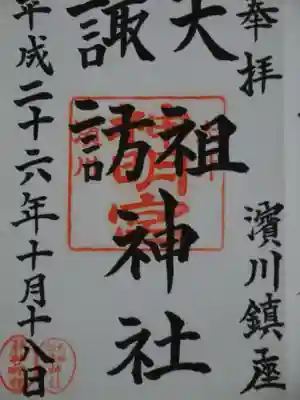 奉拝　濱川鎮座
天祖
諏訪
神社
平成二十六年十月十八日